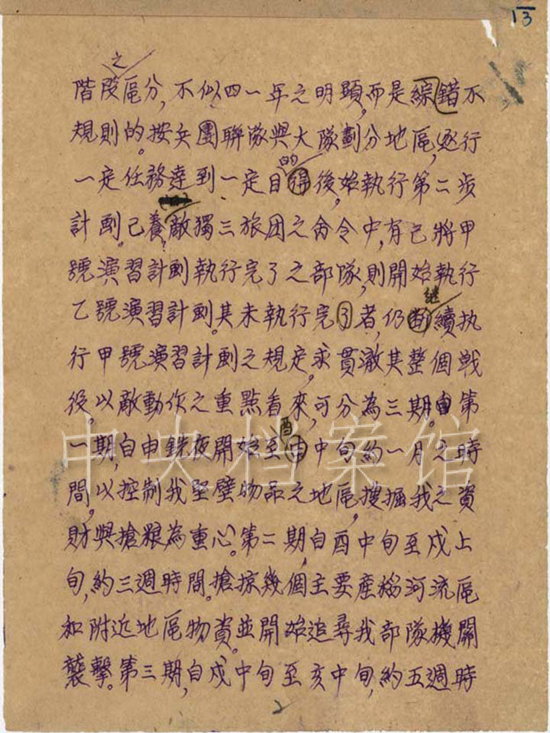 13
之
階段區分，不似四一年之明顯，而是綜錯不
規則的。按兵團聯隊與大隊劃分地區，逐行
一定任務達到一定目的後，始執行第二步
計劃。已養敵獨三旅团之命令中，有已將甲
號演習計劃執行完了之部隊，則開始執行
乙號演習計劃。其未執行完了者，仍繼續执
行甲號演習計劃之規定。求貫澈其整個戰
後。以敵動作之重點看來，可分為三期。第
一期，自申銑夜開始至酉中旬約一月之時
間。以控制我堅壁物品之地區，搜掘我之資
財與搶粮為重心。第二期，自酉中旬至戌上
旬，約三週時間。搶掠幾個主要產粮河流區
和附近地區物資並開始追尋我部隊機關
襲擊。第三期，自戌中旬至亥中旬，約五週時
2
中央档案馆